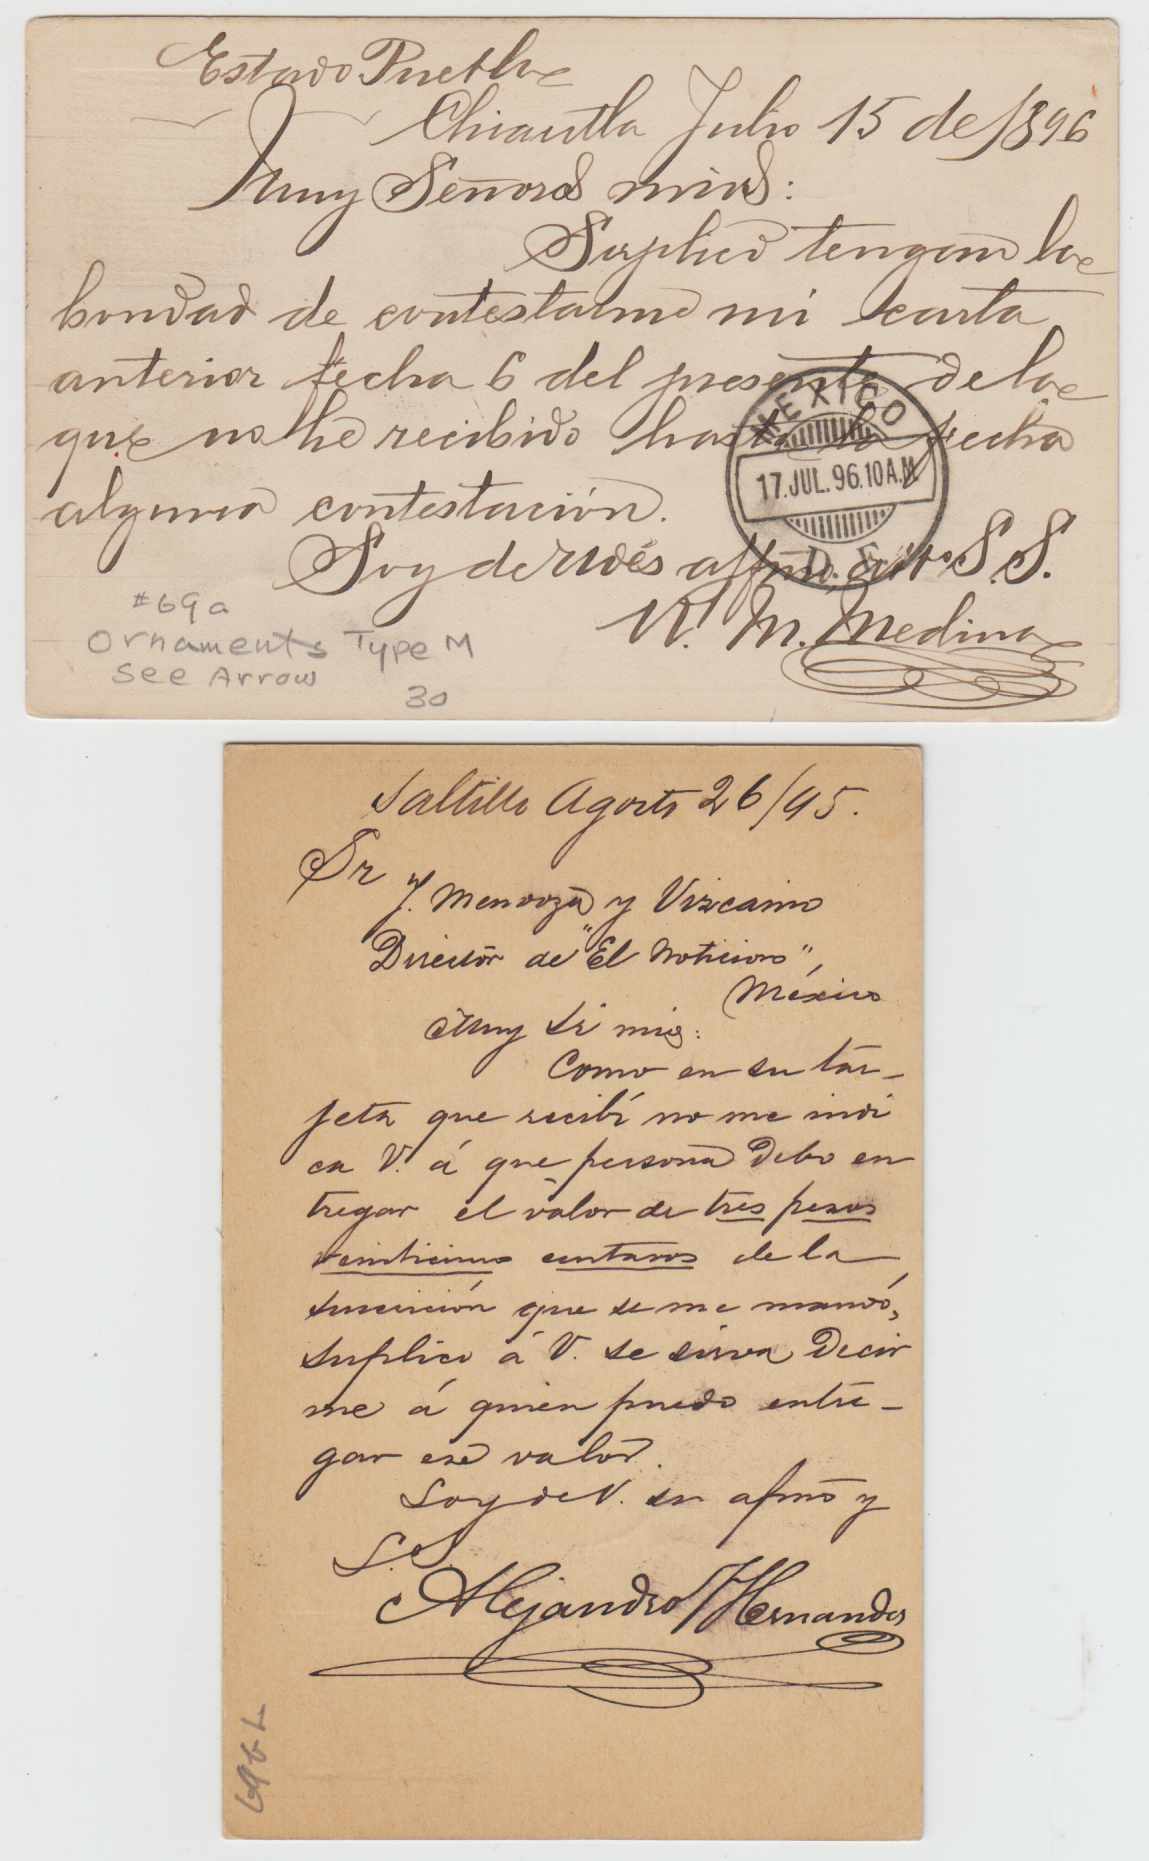 Estado Puebla
Chiautla Julio 15 de 1896
Muy Señores mios:
Suplico tengan la
bondad de contestarme mi carta
anterior fecha 6 del presente de la
que no he recibido hasta la fecha
alguna contestación.
Soy de Udes affmo, atto S. S.
M. Medina
MEXICO
17.JUL.96.10A.M.
D. F.
#69a
Ornaments Type M
See Arrow
30
Saltillo Agosto 26/95.
Sr
J. Mendoza y Vizcaino
Director de "El Noticioso",
México
Muy Sr mio:
Como en su tar-
jeta que recibí no me indi
ca V. á que persona debo en
tregar el valor de tres pesos
veinticinco centavos de la
suscrición que se me mandó,
suplico á V. se sirva decir
me á quien puedo entre-
gar ese valor.
Soy de V. su afmo y
S. S.
Alejandro Hernandes
69b L